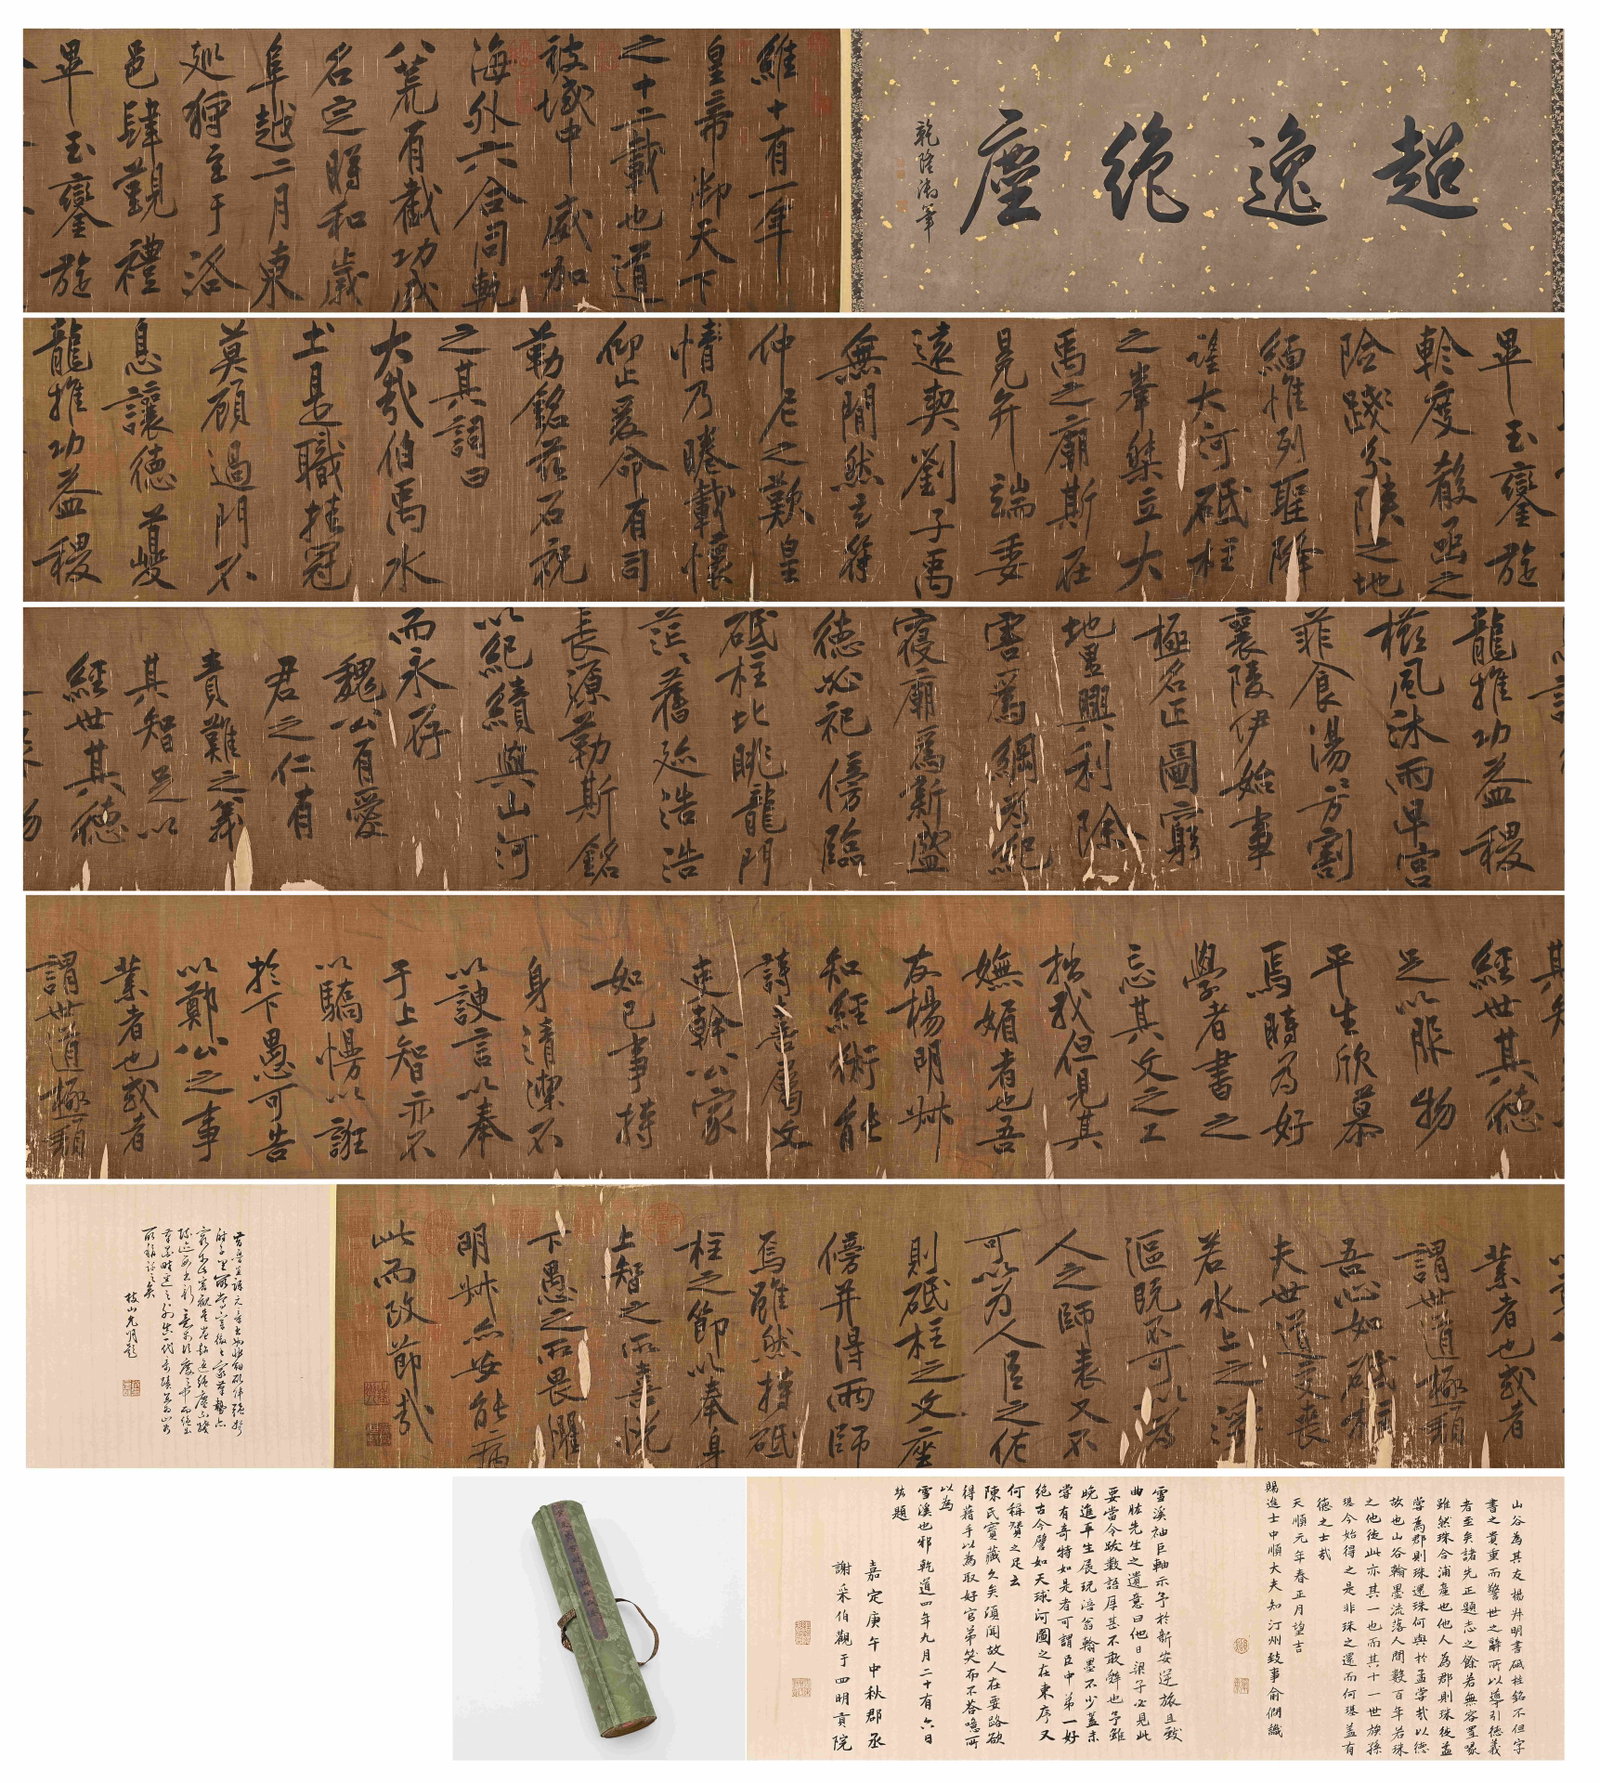 超逸絕塵
乾隆御筆
維十有一年
皇帝御天下
之十二載也道
被域中威加
海外六合同軌
八荒有截功成
名定時和歲
阜越二月東
巡狩至于洛
邑肆覲禮
畢玉鑾旋
畢玉鑾旋
軫度殽函之
險踐分陝之地
緬惟列聖降
望大河砥柱
之峯桀立大
禹之廟斯在
晃弁端委
遠契劉子禹
無閒然玄符
仲尼之歎皇
情乃睠載懷
仰止爰命有司
勒銘茲石祝
之其詞曰
大哉伯禹水
土是職挂冠
莫顧過門不
息讓德夔
龍推功益稷
龍推功益稷
櫛風沐雨卑宮
菲食湯湯方割
襄陵伊始事
極名正圖窮
地里興利除
害為綱為紀
寢廟為新盛
德必祀傍臨
砥柱北眺龍門
茫茫舊迹浩浩
長源勒斯銘
以紀績與山河
而永存
魏公有愛
君之仁有
責難之義
其智足以
經世其德
經世其德
足以服物
平生欣慕
焉時為好
學者書之
忘其文之工
拙我但見其
嫵媚者也吾
友楊明叔
知經術能
詩善屬文
吏幹公家
如己事持
身清潔不
以諛言以奉
于上智亦不
以驕慢以誑
於下愚可告
以鄭公之事
業者也或者
謂世道極頹
業者也或者
謂世道極頹
吾心如砥柱
夫世道交喪
若水上之浮
漚既不可以為
人之師表又不
可以為人臣之佐
則砥柱之文座
傍并得兩師
焉雖然持砥
柱之節以奉身
上智之所喜悅
下愚之所畏懼
明叔亦安能病
此而改節哉
枝山允明題
山谷為其友楊明書砥柱銘不但字
書之貴重而警世之辭所以導引德義
者至矣諸先正題志之餘若無容置喙
雖然珠合浦產也他人為郡則珠徙孟
嘗為郡則珠還珠何與於孟嘗哉以德
故也山谷翰墨流落人間數百年若珠
之他徙此亦其一也而其十一世族孫
琪今始得之是非珠之還而何琪蓋有
德之士哉
天順元年春正月望吉
賜進士中順大夫知汀州致事俞僩識
雪溪袖巨軸示予於新安逆旅且致
曲肱先生之遺意曰他日梁子必見此
要當令跋數語厚甚不敢辭也予雖
晚進平生展玩涪翁翰墨不少蓋未
嘗有奇特如是者可謂臣中第一好
絕古今譬如天球河圖之在東序又
何稱贊之足云
陳氏寶藏久矣須聞故人在要路欲
得藉手以為取好官弟笑而不答噫所
以為
雪溪也邪乾道四年九月二十有六日
嘉定庚午中秋郡丞
謝采伯觀于四明貢院